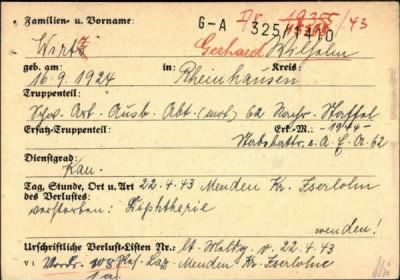 Familien- u. Vorname: G-A 325/1410 /43
Wirtz Gerhard Wilhelm
geb. am: in: Kreis:
16.9.1924 Rheinhausen
Truppenteil:
Schw. Art. Ausb. Abt. (mot) 62 Staffel
Ersatz-Truppenteil: Erk.-M.: -1944-
Stabsbattr. s. A. E. A. 62
Dienstgrad:
Kan.
Tag, Stunde, Ort u. Art 22.4.43 Menden Kr. Iserlohn
des Verlustes:
verstorben: Diphtherie
wenden!
Urschriftliche Verlust-Listen Nr.: lt. v. 22.4.43
v: Res. Laz. Menden Kr. Iserlohn